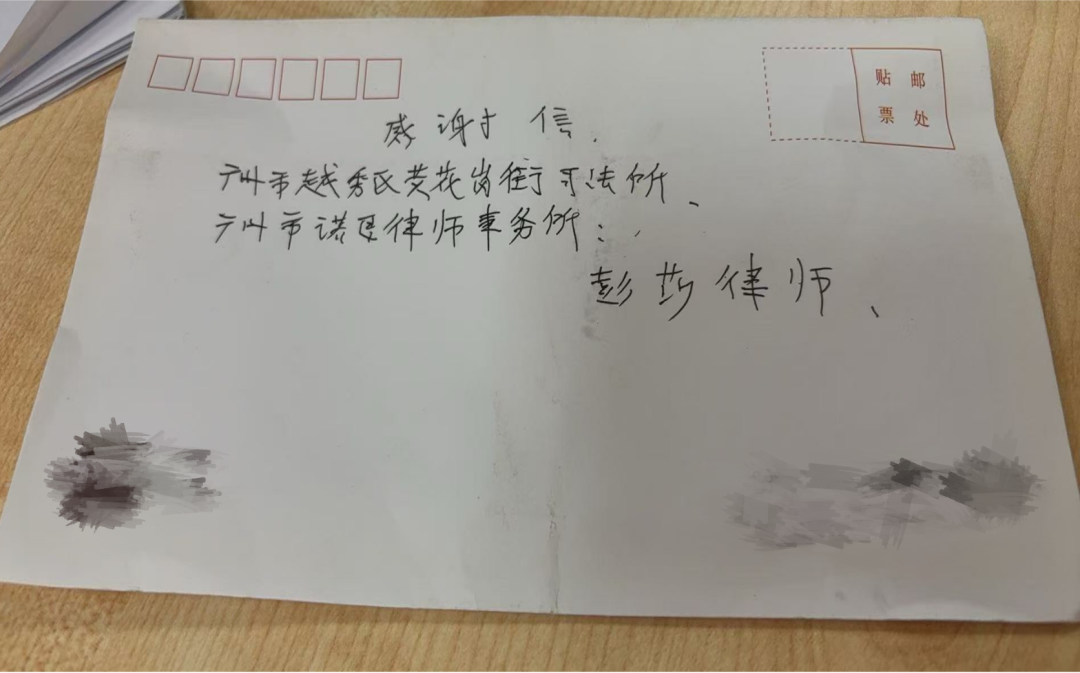 贴邮
票处
感谢信.
广州市越秀区黄花岗街司法所、
广州市诺臣律师事务所:
彭莎律师、